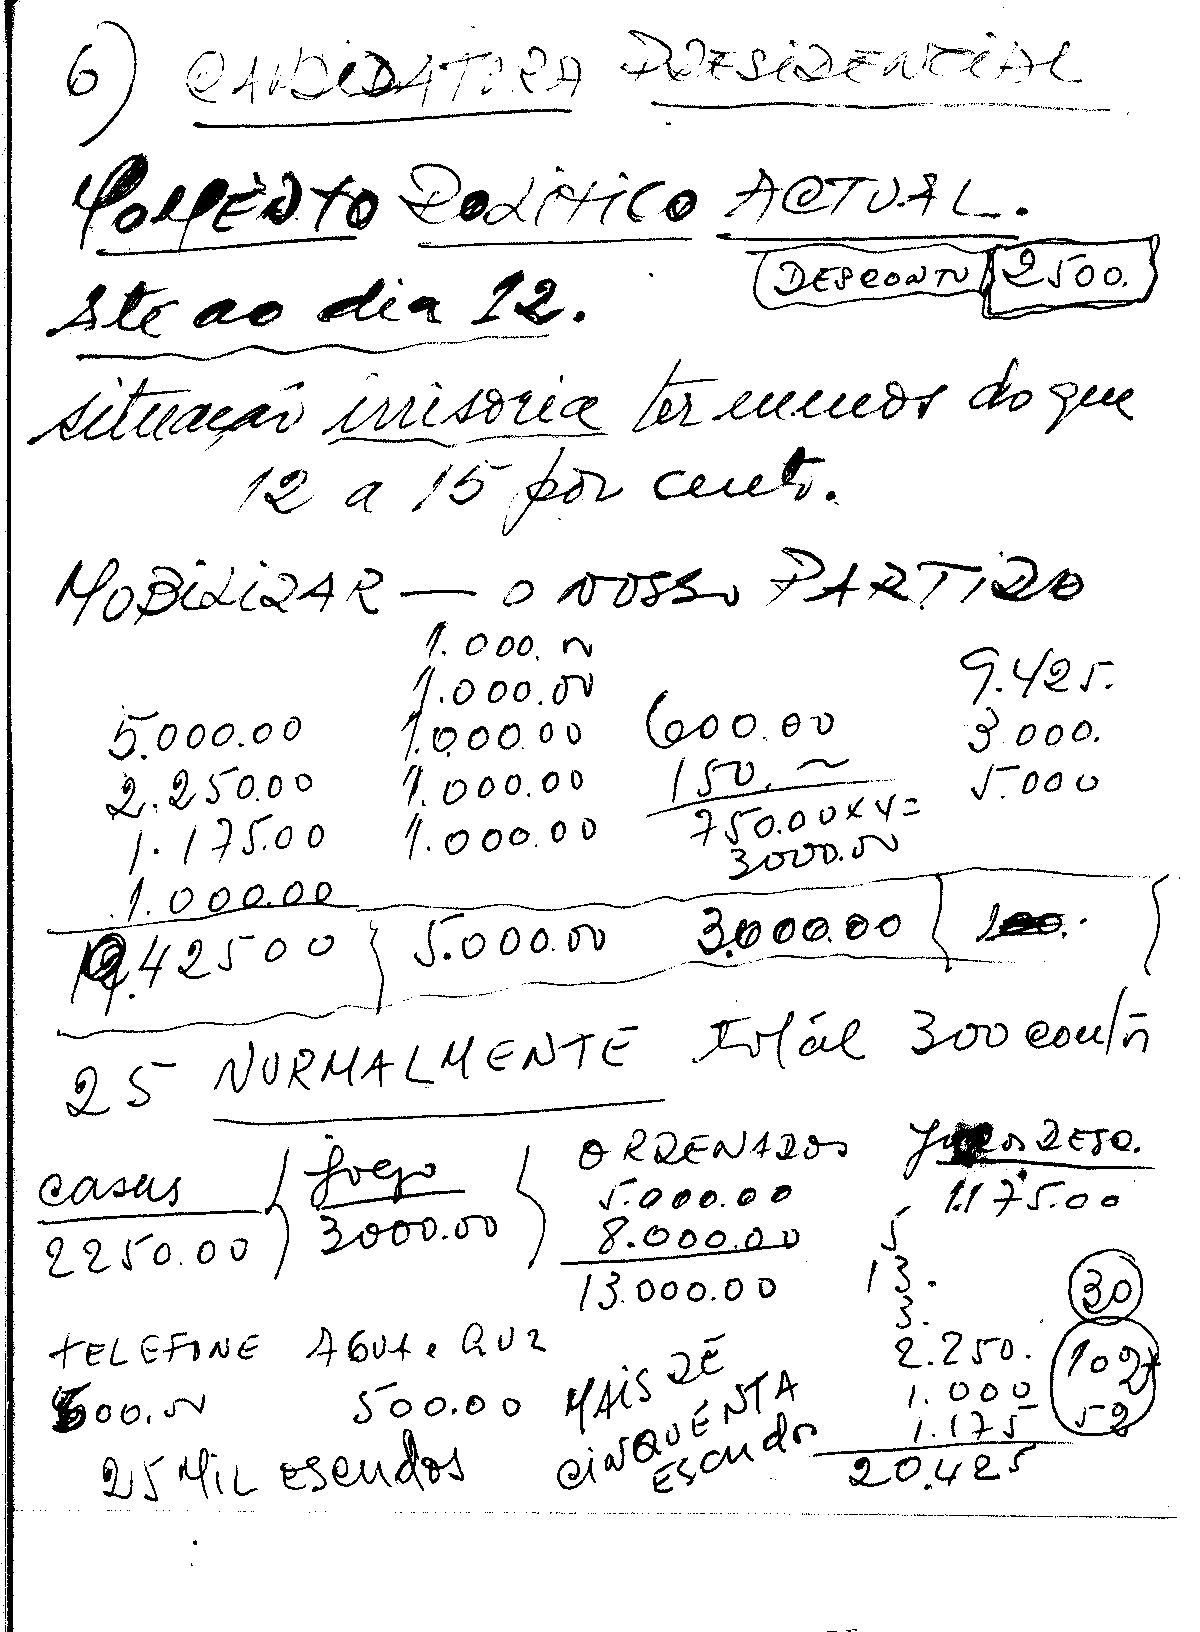 6) CANDIDATURA PRESIDENCIAL
MOMENTO POLITICO ACTUAL.
DESCONTO 2500.
Ate ao dia 12.
situação irrisoria ter menos do que
12 a 15 por cento.
MOBILIZAR — O NOSSO PARTIDO
1.000.00
1.000.00 9.425.
5.000.00 1.000.00 600.00 3.000.
2.250.00 1.000.00 150. 5.000
1.175.00 1.000.00 750.00 x 4 =
3000.00
1.000.00
9.425 00 5.000.00 3.000.00
25 NORMALMENTE total 300 contos
casas fogo ORDENADOS JUROS DESC.
2250.00 3000.00 5.000.00 1.175.00
8.000.00 5
13.000.00 13. 30
3.
TELEFONE AGUA e LUZ MAIS DE 2.250. 102
500.00 500.00 CINQUENTA 1.000 52
ESCUDOS 1.175
25 MIL escudos 20.425